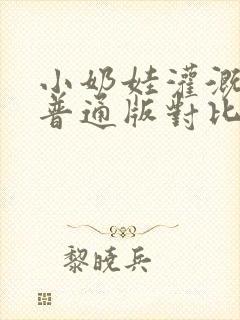 小奶娃灌溉
普通版對比
黎曉兵